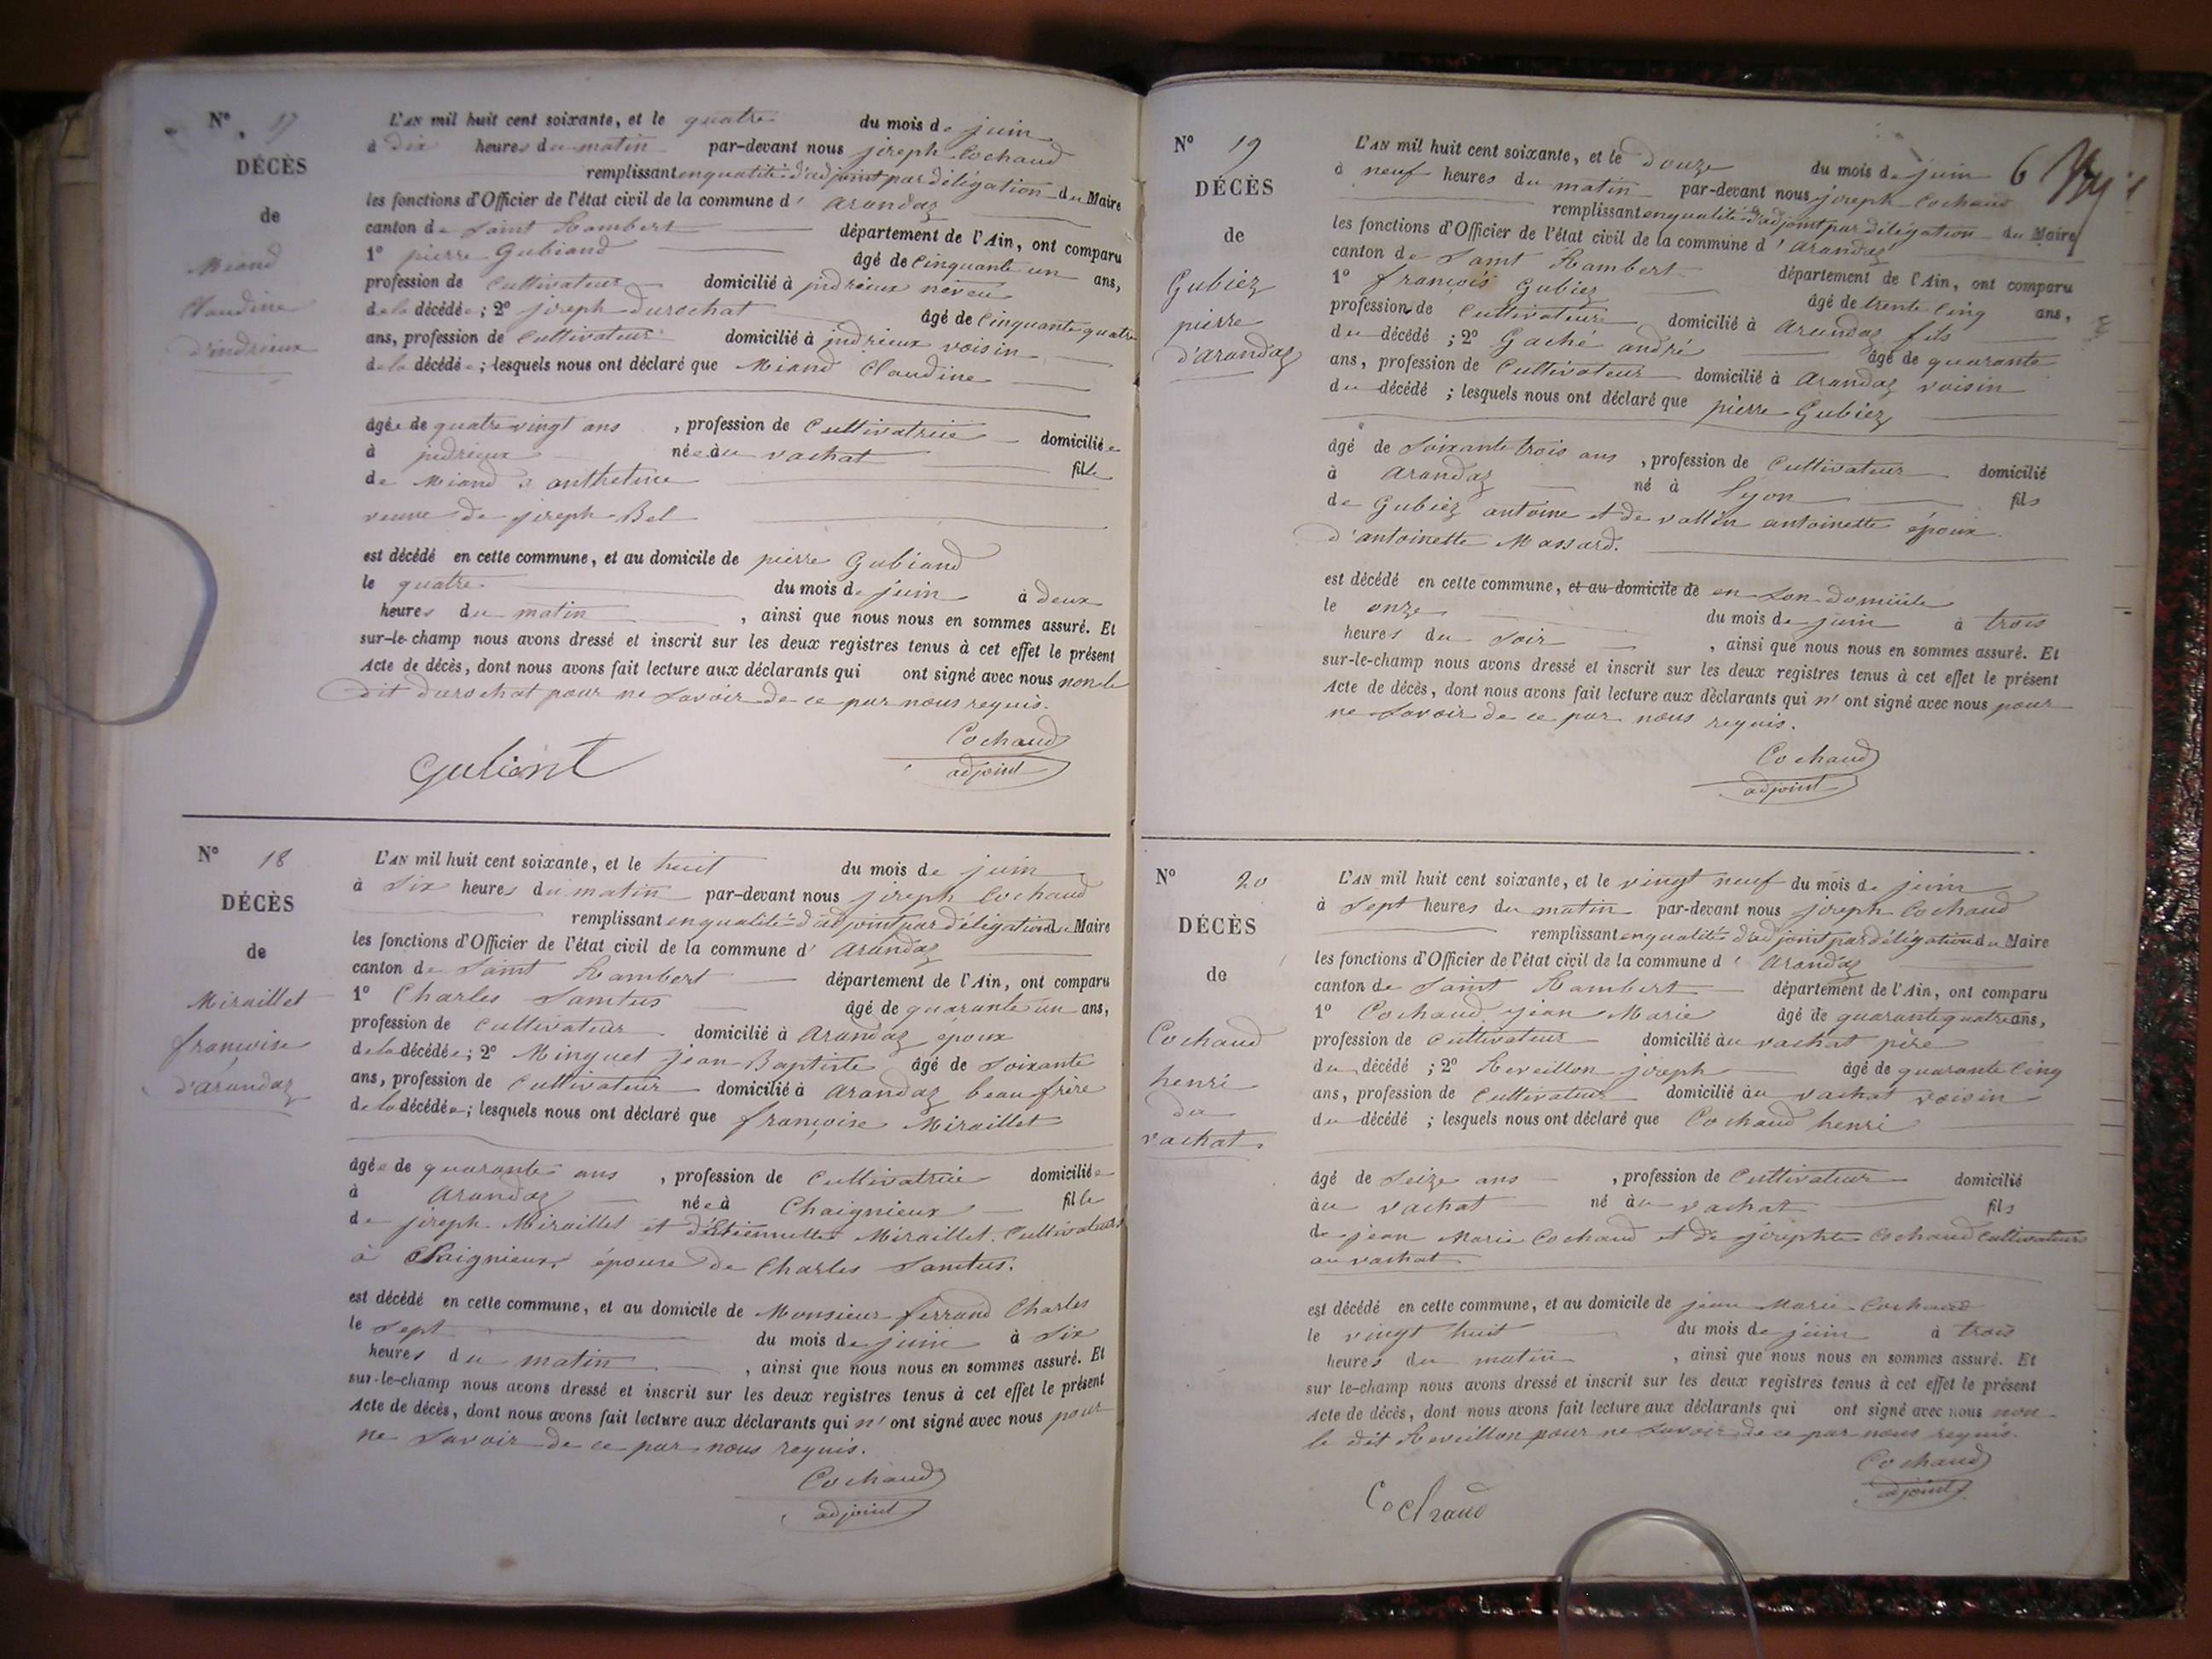 N° 17
DÉCÈS
de
Miand
Claudine
d'indrieux
L'AN mil huit cent soixante, et le quatre du mois de juin
à dix heures du matin par-devant nous joseph Cochaud
remplissant en qualité d'adjoint par délégation du Maire
les fonctions d'Officier de l'état civil de la commune d' arandaz
canton de Saint Rambert département de l'Ain, ont comparu
1° pierre Gubiand âgé de Cinquante un ans,
profession de Cultivateur domicilié à indrieux neveu
de la décédée ; 2° joseph durochat âgé de Cinquante quatre
ans, profession de Cultivateur domicilié à indrieux voisin
de la décédée ; lesquels nous ont déclaré que Miand Claudine
âgée de quatre vingt ans , profession de Cultivatrice domiciliée
à indrieux née au vachat fille
de Miand anthelme
veuve de joseph Bel
est décédé en cette commune, et au domicile de pierre Gubiand
le quatre du mois de juin à deux
heures du matin , ainsi que nous nous en sommes assuré. Et
sur-le-champ nous avons dressé et inscrit sur les deux registres tenus à cet effet le présent
Acte de décès, dont nous avons fait lecture aux déclarants qui ont signé avec nous non le
dit durochat pour ne savoir de ce par nous requis.
Cochaud
adjoint
N° 18
DÉCÈS
de
Miraillet
françoise
d'arandaz
L'AN mil huit cent soixante, et le huit du mois de juin
à Six heures du matin par-devant nous joseph Cochaud
remplissant en qualité d'adjoint par délégation du Maire
les fonctions d'Officier de l'état civil de la commune d' arandaz
canton de Saint Rambert département de l'Ain, ont comparu
1° Charles Santus âgé de quarante un ans,
profession de Cultivateur domicilié à arandaz époux
de la décédée ; 2° Minguet jean Baptiste âgé de Soixante
ans, profession de Cultivateur domicilié à arandaz beau frère
de la décédée ; lesquels nous ont déclaré que françoise Miraillet
âgée de quarante ans , profession de Cultivatrice domiciliée
à arandaz née à Chaignieux fille
de joseph Miraillet et d'Etiennette Miraillet Cultivateurs
à Chaignieux, épouse de Charles Santus.
est décédé en cette commune, et au domicile de Monsieur ferrand Charles
le Sept du mois de juin à Six
heures du matin , ainsi que nous nous en sommes assuré. Et
sur-le-champ nous avons dressé et inscrit sur les deux registres tenus à cet effet le présent
Acte de décès, dont nous avons fait lecture aux déclarants qui n' ont signé avec nous pour
ne Savoir de ce par nous requis.
Cochaud
adjoint
6
N° 19
DÉCÈS
de
Gubiez
pierre
d'arandaz
L'AN mil huit cent soixante, et le douze du mois de juin
à neuf heures du matin par-devant nous joseph Cochaud
remplissant en qualité d'adjoint par délégation du Maire
les fonctions d'Officier de l'état civil de la commune d' arandaz
canton de Saint Rambert département de l'Ain, ont comparu
1° françois Gubiez âgé de trente Cinq ans,
profession de Cultivateur domicilié à arandaz fils
du décédé ; 2° Gaché andré âgé de quarante
ans, profession de Cultivateur domicilié à arandaz voisin
du décédé ; lesquels nous ont déclaré que pierre Gubiez
âgé de Soixante trois ans , profession de Cultivateur domicilié
à arandaz né à Lyon fils
de Gubiez antoine et de vallin antoinette époux
d'antoinette Massard.
est décédé en cette commune, et au domicile de en son domicile
le onze du mois de juin à trois
heures du Soir , ainsi que nous nous en sommes assuré. Et
sur-le-champ nous avons dressé et inscrit sur les deux registres tenus à cet effet le présent
Acte de décès, dont nous avons fait lecture aux déclarants qui n' ont signé avec nous pour
ne Savoir de ce par nous requis.
Cochaud
adjoint
N° 20
DÉCÈS
de
Cochaud
henri
du
vachat
L'AN mil huit cent soixante, et le vingt neuf du mois de juin
à Sept heures du matin par-devant nous joseph Cochaud
remplissant en qualité d'adjoint par délégation du Maire
les fonctions d'Officier de l'état civil de la commune d' arandaz
canton de Saint Rambert département de l'Ain, ont comparu
1° Cochaud jean Marie âgé de quarante quatre ans,
profession de Cultivateur domicilié au vachat père
du décédé ; 2° Reveillon joseph âgé de quarante Cinq
ans, profession de Cultivateur domicilié au vachat voisin
du décédé ; lesquels nous ont déclaré que Cochaud henri
âgé de Seize ans , profession de Cultivateur domicilié
au vachat né au vachat fils
de jean Marie Cochaud et de josephte Cochaud Cultivateurs
au vachat
est décédé en cette commune, et au domicile de jean Marie Cochaud
le vingt huit du mois de juin à trois
heures du matin , ainsi que nous nous en sommes assuré. Et
sur le-champ nous avons dressé et inscrit sur les deux registres tenus à cet effet le présent
Acte de décès, dont nous avons fait lecture aux déclarants qui ont signé avec nous non
le dit Reveillon pour ne savoir de ce par nous requis.
Cochaud
adjoint
Cochaud